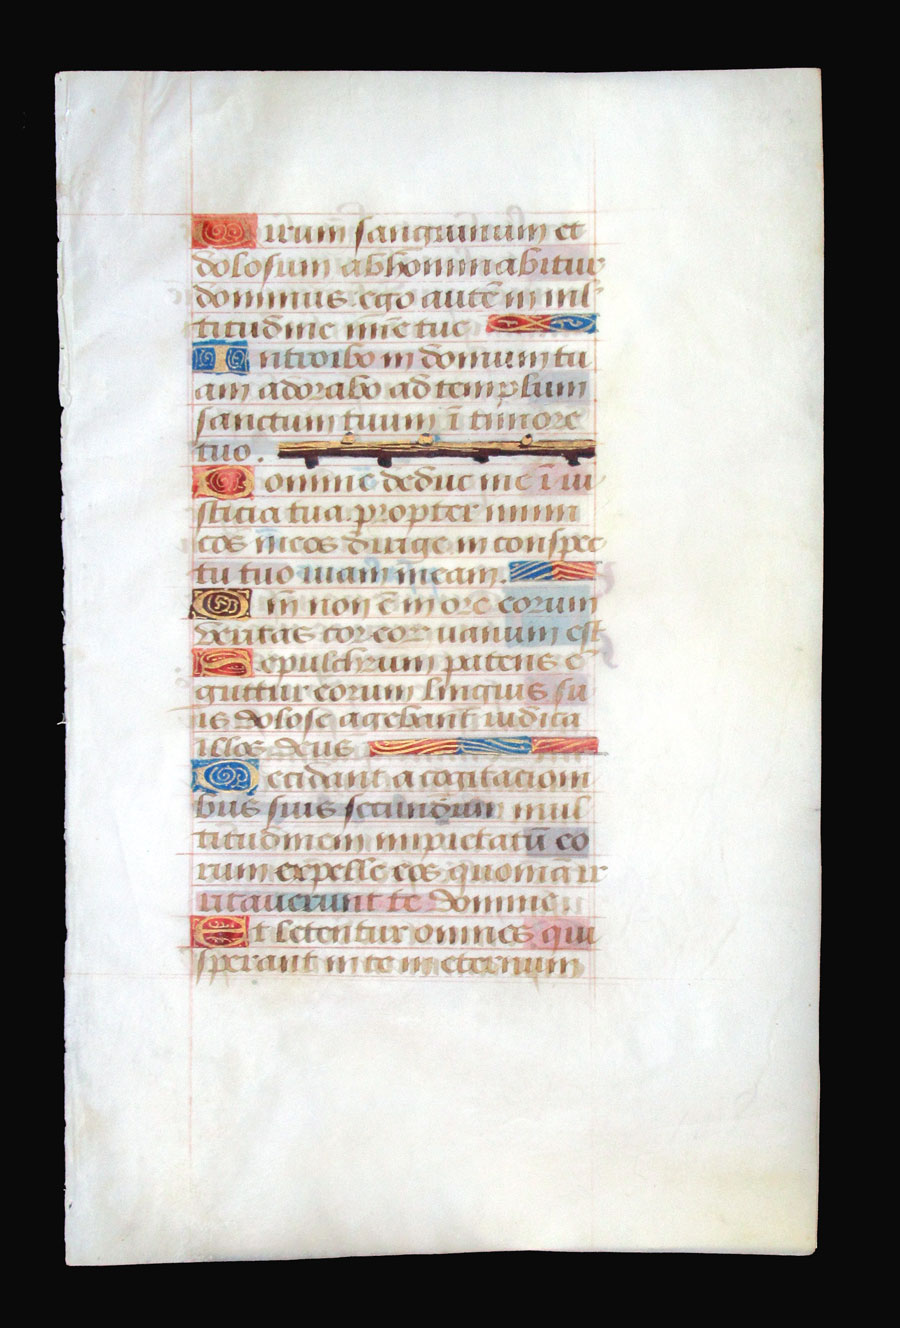 Uirum sanguinum et
dolosum abhominabitur
dominus egoautē in mul
titudine m̄ie tue
Introibo in domum tu
am adorabo ad templum
sanctum tuum ī timore
tuo.
Domine deduc me ī iu
sticia tua propter inimi
cos meos dirige in conspec
tu tuo uiam meam.
Qm̄ non ē in ore eorum
veritas cor eor uanum est
Sepulchrum patens ē
guttur eorum linguis su
is dolose agebant iudica
illos deus
Decidant a cogitationi
bus suis secundum mul
titudinem impietatū eo
rum expelle eos quoniā ir
ritauerunt te domine
Et letentur omnes qui
sperant in te in eternum